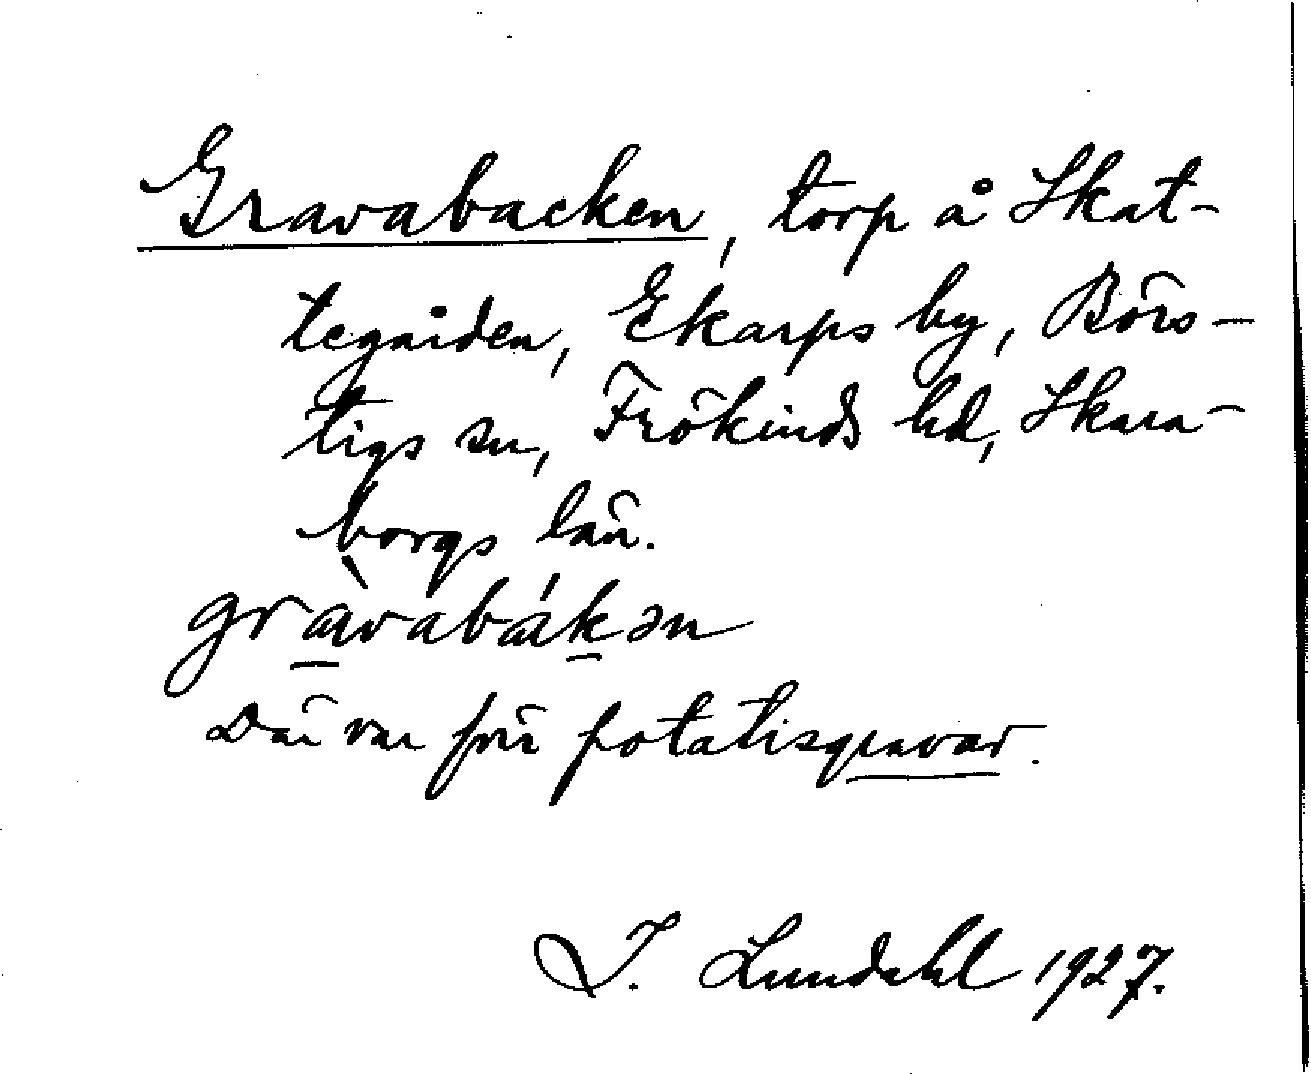 Gravabacken, torp å Skat-
tegården, Ekarps by, Börs-
tigs sn, Frökinds hd, Skara-
borgs län.
gràvabák̠ən
Där var förr potatisgravar.
I. Lundahl 1927.